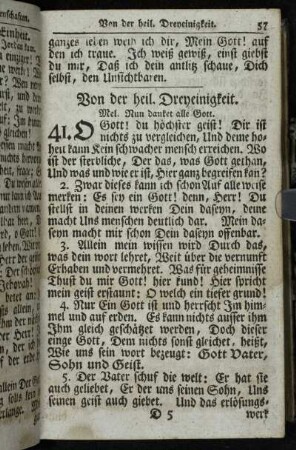 Von der heil. Dreyeinigkeit. 57
ganzes leben weih ich dir, Mein Gott! auf
den ich traue. Ich weiß gewiß, einst giebst
du mir, Daß ich dein antlitz schaue, Dich
selbst, den Unsichtbaren.
Von der heil. Dreyeinigkeit.
Mel. Nun danket alle Gott.
41. O Gott! du höchster geist! Dir ist
nichts zu vergleichen, Und deine ho-
heit kann Kein schwacher mensch erreichen. Wo
ist der sterbliche, Der das, was Gott gethan,
Und was und wie er ist, Hier ganz begreifen kan?
2. Zwar dieses kann ich schon Auf alle weise
merken: Es sey ein Gott! denn, Herr! Du
stellst in deinen werken Dein daseyn, deine
macht Uns menschen deutlich dar. Mein da-
seyn macht mir schon Dein daseyn offenbar.
3. Allein mein wissen wird Durch das,
was dein wort lehret, Weit über die vernunft
Erhaben und vermehret. Was für geheimnisse
Thust du mir Gott! hier kund! Hier spricht
mein geist erstaunt: O welch ein tiefer grund!
4. Nur Ein Gott ist und herrscht Im him-
mel und auf erden. Es kann nichts ausser ihm
Ihm gleich geschätzet werden, Doch dieser
einge Gott, Dem nichts sonst gleichet, heißt,
Wie uns sein wort bezeugt: Gott Vater,
Sohn und Geist.
5. Der Vater schuf die welt: Er hat sie
auch geliebet, Er der uns seinen Sohn, Uns
seinen geist auch giebet. Und das erlösungs-
D 5 werk